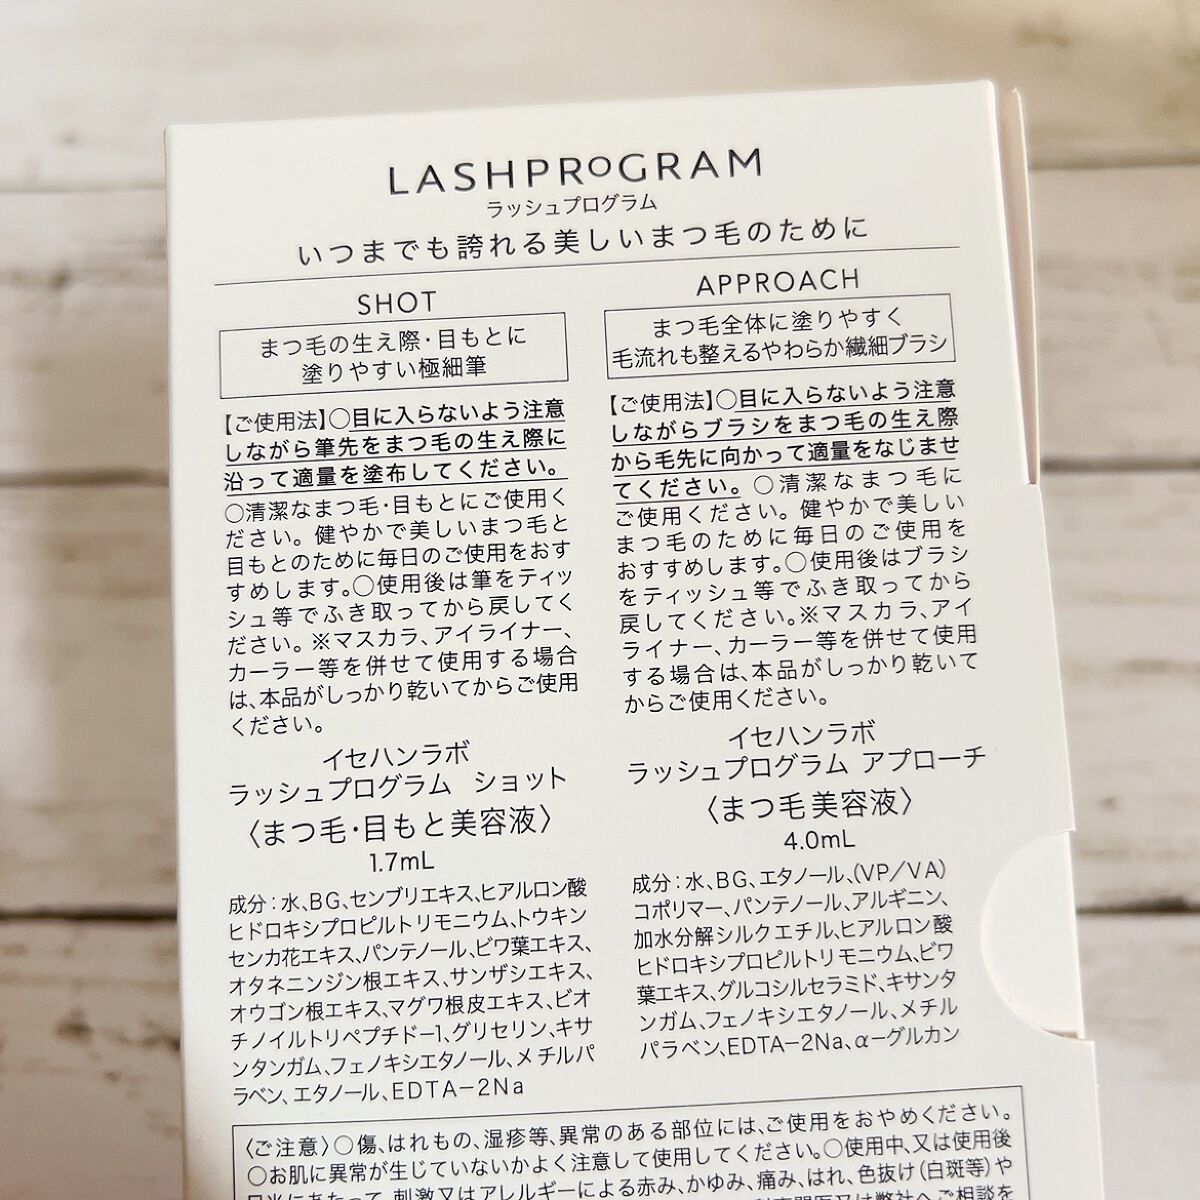 LASHPROGRAM
ラッシュプログラム
いつまでも誇れる美しいまつ毛のために
SHOT
まつ毛の生え際・目もとに
塗りやすい極細筆
【ご使用法】○目に入らないよう注意
しながら筆先をまつ毛の生え際に
沿って適量を塗布してください。
○清潔なまつ毛・目もとにご使用く
ださい。健やかで美しいまつ毛と
目もとのために毎日のご使用をおす
すめします。○使用後は筆をティッ
シュ等でふき取ってから戻してく
ださい。※マスカラ、アイライナー、
カーラー等を併せて使用する場合
は、本品がしっかり乾いてからご使用
ください。
イセハンラボ
ラッシュプログラム ショット
〈まつ毛・目もと美容液〉
1.7mL
成分：水、BG、センブリエキス、ヒアルロン酸
ヒドロキシプロピルトリモニウム、トウキン
センカ花エキス、パンテノール、ビワ葉エキス、
オタネニンジン根エキス、サンザシエキス、
オウゴン根エキス、マグワ根皮エキス、ビオ
チノイルトリペプチド-1、グリセリン、キサ
ンタンガム、フェノキシエタノール、メチルパ
ラベン、エタノール、EDTA-2Na
APPROACH
まつ毛全体に塗りやすく
毛流れも整えるやわらか繊細ブラシ
【ご使用法】○目に入らないよう注意
しながらブラシをまつ毛の生え際
から毛先に向かって適量をなじませ
てください。○清潔なまつ毛に
ご使用ください。健やかで美しい
まつ毛のために毎日のご使用を
おすすめします。○使用後はブラシ
をティッシュ等でふき取ってから
戻してください。※マスカラ、アイ
ライナー、カーラー等を併せて使用
する場合は、本品がしっかり乾いて
からご使用ください。
イセハンラボ
ラッシュプログラム アプローチ
〈まつ毛美容液〉
4.0mL
成分：水、BG、エタノール、(VP/VA)
コポリマー、パンテノール、アルギニン、
加水分解シルクエチル、ヒアルロン酸
ヒドロキシプロピルトリモニウム、ビワ
葉エキス、グルコシルセラミド、キサンタ
ンガム、フェノキシエタノール、メチル
パラベン、EDTA-2Na、α-グルカン
〈ご注意〉○傷、はれもの、湿疹等、異常のある部位には、ご使用をおやめください。
○お肌に異常が生じていないかよく注意して使用してください。○使用中、又は使用後
日光にあたって、刺激又はアレルギーによる赤み、かゆみ、痛み、はれ、色抜け(白斑等)や
又は弊社へご相談を